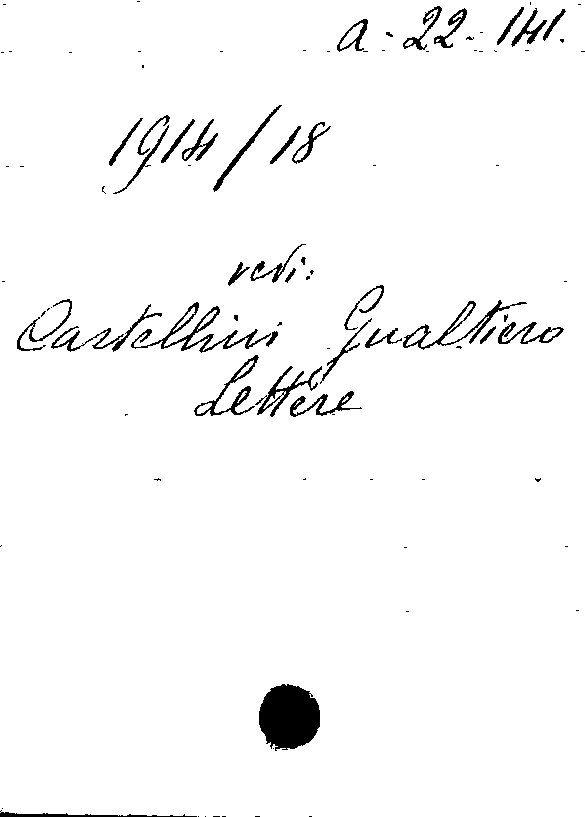 a-22-141.
1914/18
vedi:
Castellini Gualtiero
Lettere